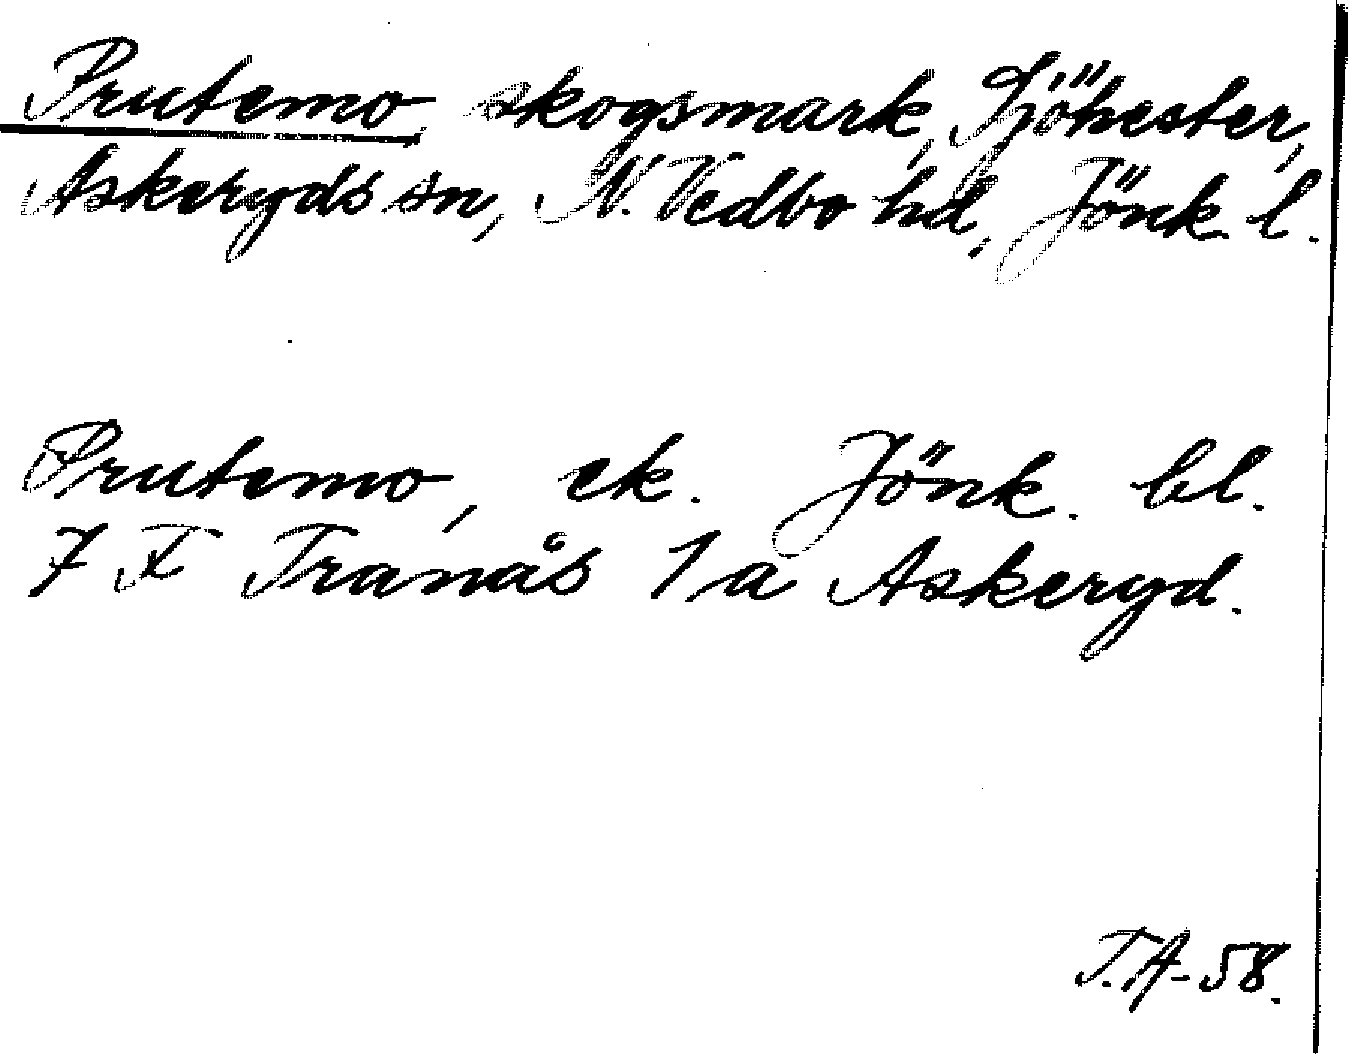 Prutemo skogsmark, Sjöhester,
Askeryds sn, N. Vedbo hd, Jönk. l.
Prutemo, ek. Jönk. bl.
7 F Tranås 1 a Askeryd.
T.A-58.